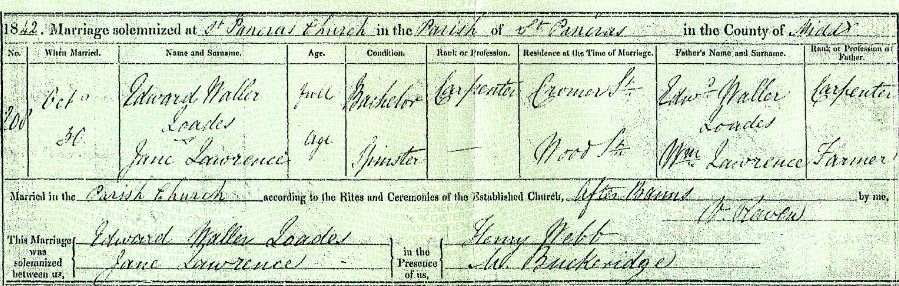 1842. Marriage solemnized at St Pancras Church in the Parish of St Pancras in the County of Middx
No. When Married. Name and Surname. Age. Condition. Rank or Profession. Residence at the Time of Marriage. Father's Name and Surname. Rank or Profession of Father.
Octr Edward Waller full Bachelor Carpenter Cromer St Edwd Waller Carpenter
Loades Loades
30 Jane Lawrence Age Spinster — Wood St Wm Lawrence Farmer
Married in the Parish Church according to the Rites and Ceremonies of the Established Church, After Banns by me,
This Marriage was solemnized between us, Edward Waller Loades
Jane Lawrence
in the Presence of us, Henry Webb
M. Buckeridge